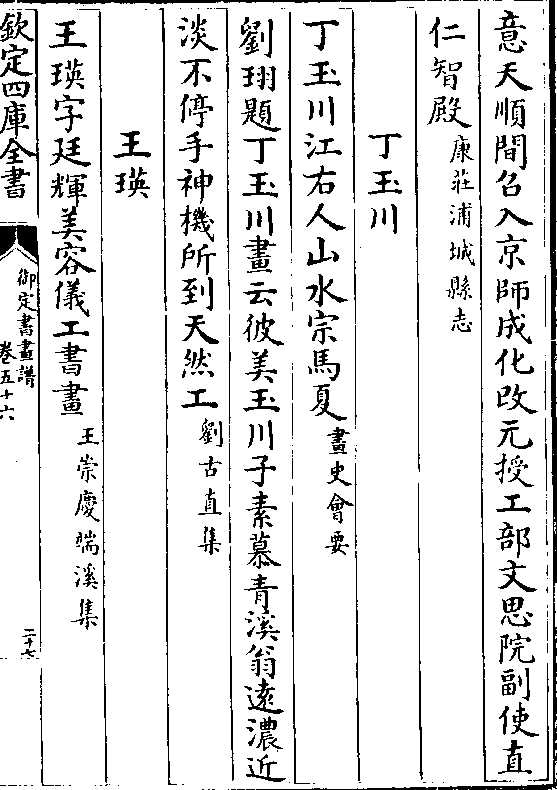 意天順間召入京師成化改元授工部文思院副使直
仁智殿康莊浦城縣志
丁玉川
丁玉川江右人山水宗馬夏畫史會要
劉珝題丁玉川畫云彼美玉川子素慕青溪翁遠濃近
淡不停手神機所到天然工劉古直集
王瑛
王瑛字廷輝美容儀工書畫王崇慶端溪集
欽定四庫全書
御定書畫譜
卷五十六
二十七